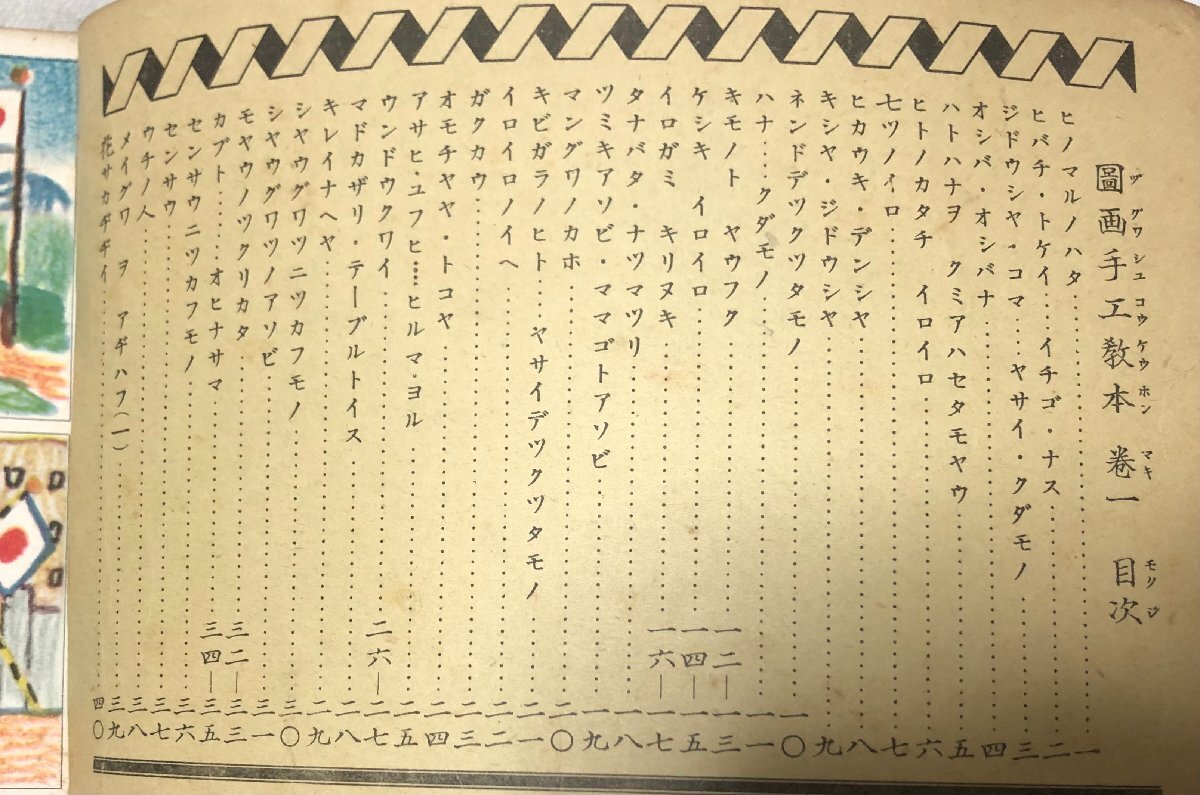 圖画手工教本 巻一 目次
ヅグワシユコウケウホン マキ モクジ
ヒノマルノハタ……一
ヒバチ・トケイ…イチゴ・ナス……二
ジドウシヤ・コマ…ヤサイ・クダモノ……三
オシバ・オシバナ……四
ハトハナヲ クミアハセタモヤウ……五
ヒトノカタチ イロイロ……六
七ツノイロ……七
ヒカウキ・デンシヤ……八
キシヤ・ジドウシヤ……九
ネンドデツクツタモノ……一〇
ハナ…クダモノ……一一
キモノト ヤウフク……一二―一三
ケシキ イロイロ……一四―一五
イロガミ キリヌキ……一六―一七
タナバタ・ナツマツリ……一八
ツミキアソビ・ママゴトアソビ……一九
マングワノカホ……二〇
キビガラノヒト…ヤサイデツクツタモノ……二一
イロイロノイヘ……二二
ガクカウ……二三
オモチヤヤ・トコヤ……二四
アサヒ・ユフヒ……ヒルマ・ヨル……二五
ウンドウクワイ……二六―二七
マドカザリ・テーブルトイス……二八
キレイナヘヤ……二九
シヤウグワツニツカフモノ……三〇
シヤウグワツノアソビ……三一
モヤウノツクリカタ……三二―三三
カブト……オヒナサマ……三四―三五
センサウニツカフモノ……三六
センサウ……三七
ウチノ人……三八
メイグワ ヲ アヂハフ(一)……三九
花サカヂヂイ……四〇